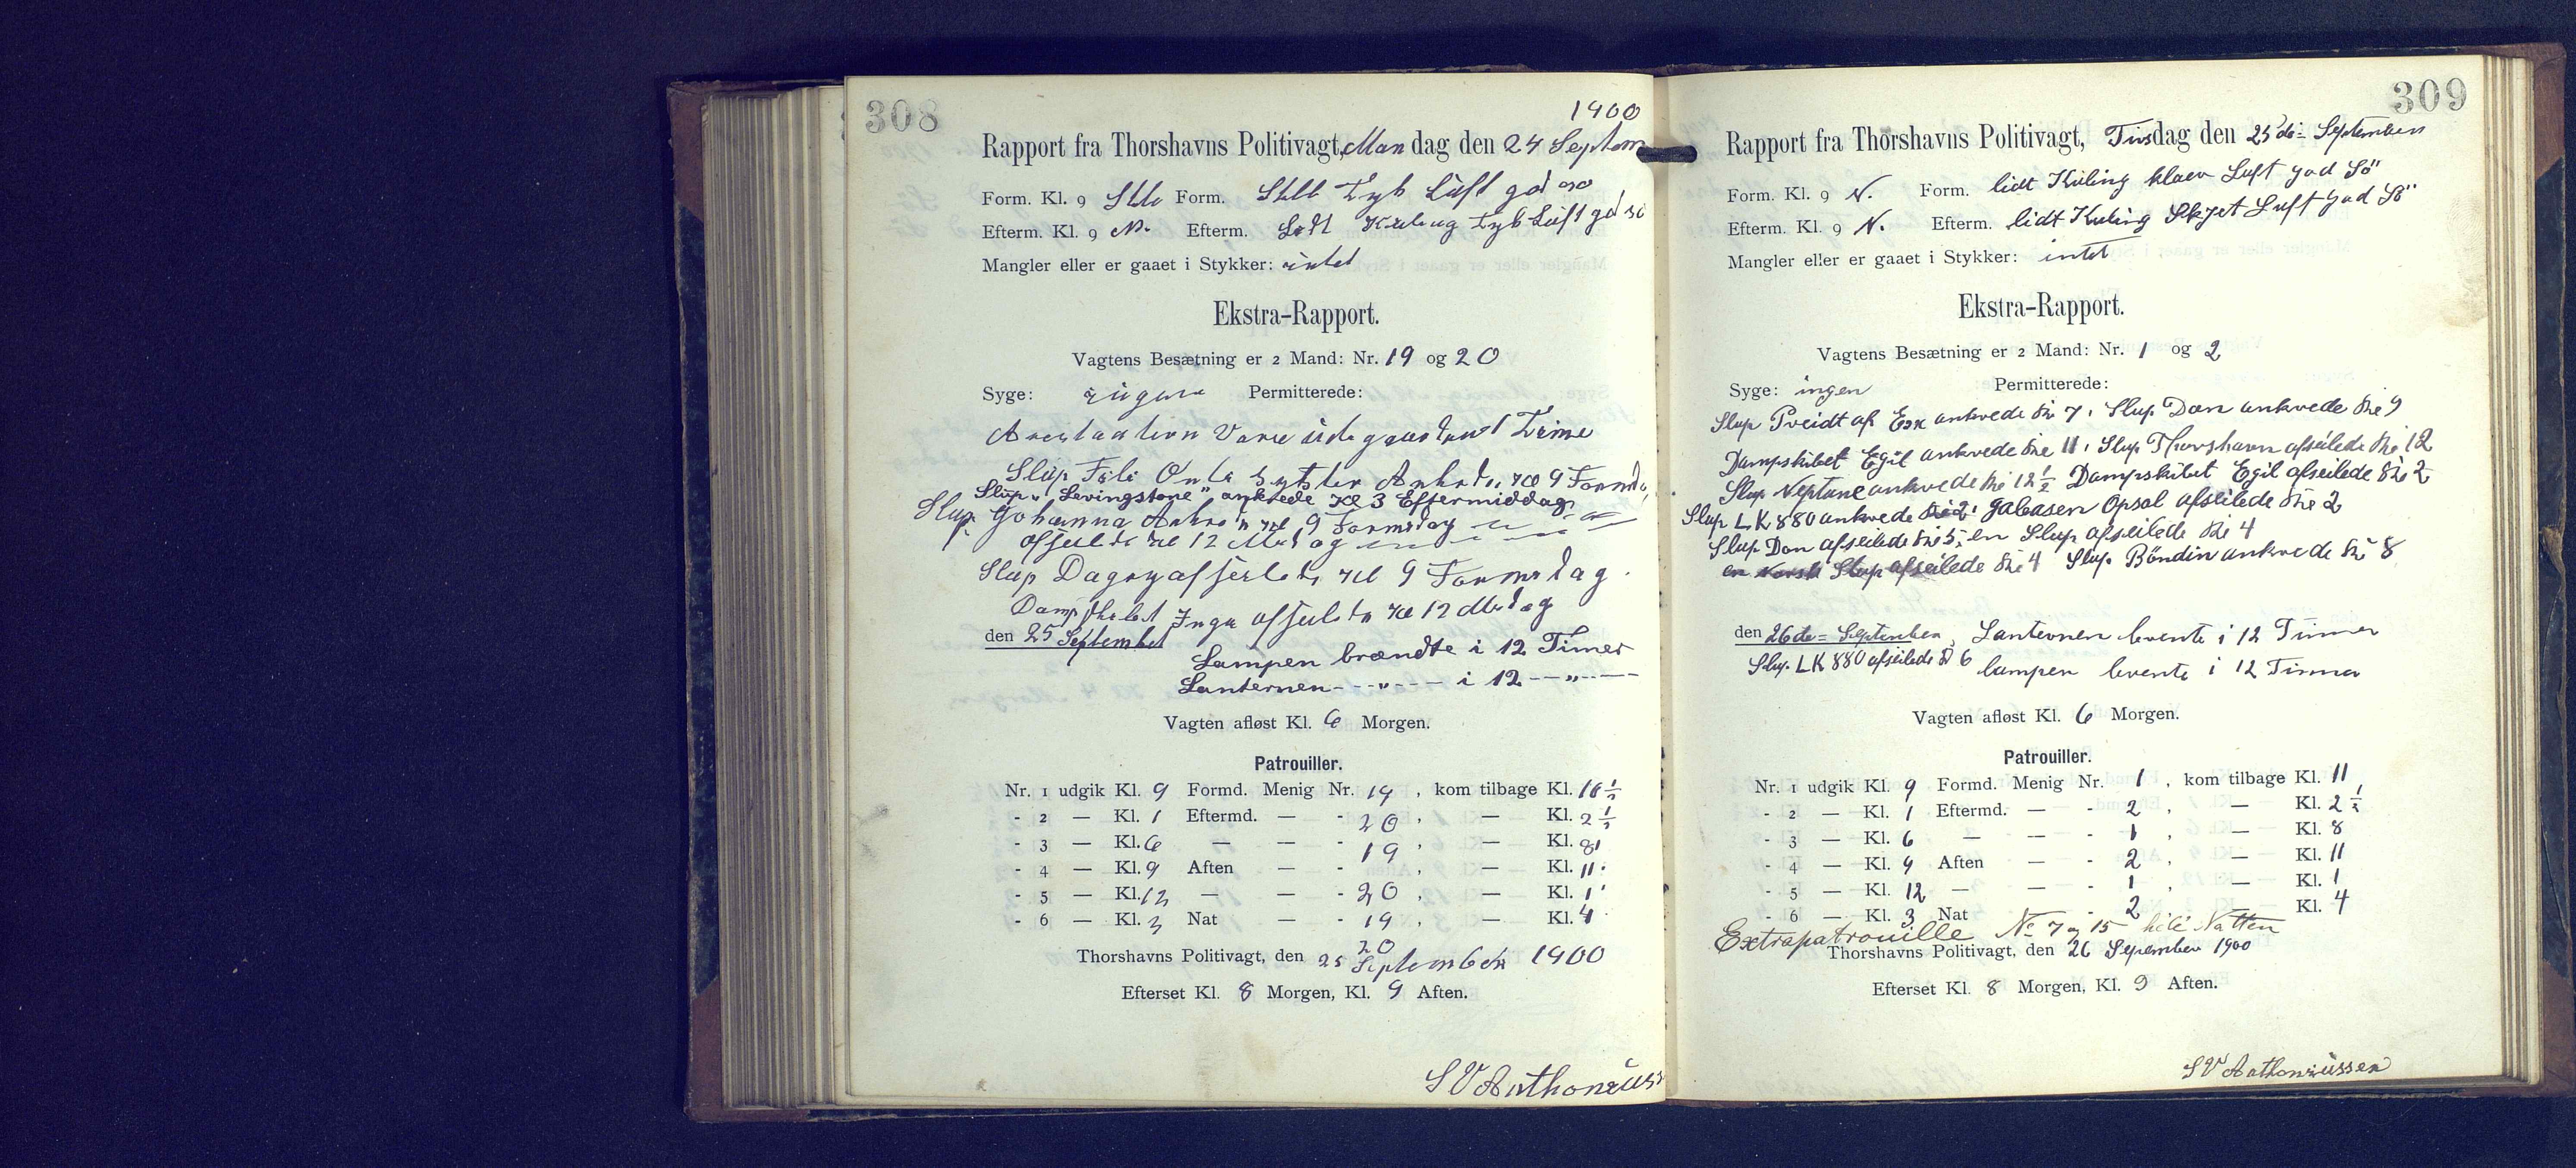 308
1900
Rapport fra Thorshavns Politivagt, Mandag den 24 Septem
Form. Kl. 9 Stle Form. Stell Tyk Luft god so
Efterm. Kl. 9 N. Efterm. Lidt Kuling Tyk Luft god so
Mangler eller er gaaet i Stykker: intet
Ekstra-Rapport.
Vagtens Besætning er 2 Mand: Nr. 19 og 20
Syge: ingen Permitterede:
Vare
Slup Ankrede Kl 9 Formd
Slup "Levingstone" ankrede Kl 3 Eftermiddag
Slup Johanna Ankred Kl 9 Formidag
afseilede Kl 12 Midag
Slup Dagny afseilede Kl 9 Formedag.
Dampskibet Inga afseilede Kl 12 Midag
den 25 September
Lampen brændte i 12 Timer
Lanternen - - " - - i 12 - " -
Vagten afløst Kl. 6 Morgen.
Patrouiller.
Nr. 1 udgik Kl. 9 Formd. Menig Nr. 19, kom tilbage Kl. 10 ½
- 2 — Kl. 1 Eftermd. — - 20, — Kl. 2 ½
- 3 — Kl. 6 — — - 19, — Kl. 8
- 4 — Kl. 9 Aften — - , — Kl. 11
- 5 — Kl. 12 — — - 20, — Kl. 1
- 6 — Kl. 3 Nat — - 19, — Kl. 4
20
Thorshavns Politivagt, den 25 September 1900
Efterset Kl. 8 Morgen, Kl. 9 Aften.
S V Anthoniuss
309
Rapport fra Thorshavns Politivagt, Tirsdag den 25de= September
Form. Kl. 9 N. Form. lidt Kuling klaer Luft god Sö
Efterm. Kl. 9 N. Efterm. lidt Kuling Skyet Luft god Sö
Mangler eller er gaaet i Stykker: intet
Ekstra-Rapport.
Vagtens Besætning er 2 Mand: Nr. 1 og 2
Syge: ingen Permitterede:
Slup ankrede Kl 7. Slup Dan ankrede Kl 9
Dampskibet Egil ankrede Kl 11. Slup Thorshavn afseilede Kl 12
Slup Neptune ankrede Kl 12 ½ Dampskibet Egil afseilede Kl 2
Slup LK 880 ankrede Kl 2. galeasen Opsal afseilede Kl 2
Slup Dan afseilede Kl 5. en Slup afseilede Kl 4
en Norsk Slup afseilede Kl 4 Slup Böndin ankrede Kl 8
den 26de= September, Lanternen brente i 12 Timer
Slup LK 880 afseilede Kl 6 lampen brente i 12 Timer
Vagten afløst Kl. 6 Morgen.
Patrouiller.
Nr. 1 udgik Kl. 9 Formd. Menig Nr. 1, kom tilbage Kl. 11
- 2 — Kl. 1 Eftermd. — - 2, — Kl. 2 ½
- 3 — Kl. 6 — — - 1, — Kl. 8
- 4 — Kl. 9 Aften — - 2, — Kl. 11
- 5 — Kl. 12 — — - 1, — Kl. 1
- 6 — Kl. 3 Nat - 2 — Kl. 4
Extrapatrouille No 7 og 15 hele Natten
Thorshavns Politivagt, den 26 September 1900
Efterset Kl. 8 Morgen, Kl. 9 Aften.
S V Anthoniussen